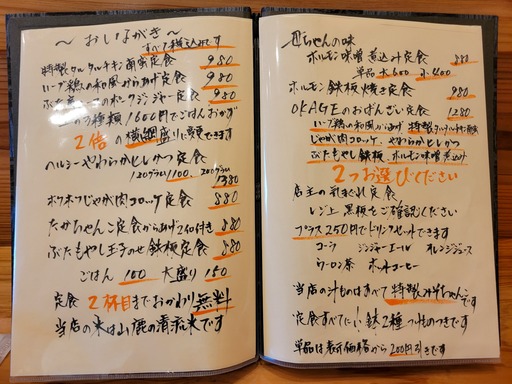 〜おしながき〜
すべて税込みです
特製タルタルチキン南蛮定食 980
ハーブ鶏の和風からあげ定食 980
ポークジンジャー定食 980
上の3種類 1600円でごはんおかず
2倍の横綱盛りに変更できます
ヘルシーやわらかヒレかつ定食
120グラム 1100、200グラム 1380
ホクホクじゃが肉コロッケ定食 880
たかちゃんこ定食からあげ2コ付き 880
ぶたもやし玉子のせ鉄板定食 880
ごはん 100 大盛り 150
定食2杯目までおかわり無料
当店の米は山鹿の清流米です
ちゃんの味
ホルモン味噌煮込み定食 880
単品 大600 小400
ホルモン鉄板焼き定食 980
OKAGEのおばんざい定食 1280
ハーブ鶏の和風からあげ 特製タルタルチキン南蛮
じゃが肉コロッケ、やわらかヒレかつ
ぶたもやし鉄板、ホルモン味噌煮込み
2つお選びください
店主の気まぐれ定食
レジ上黒板をご確認ください
プラス250円でドリンクセットできます
コーラ ジンジャーエール オレンジジュース
ウーロン茶 ホットコーヒー
当店の汁ものはすべて特製みそちゃんこです
定食すべてに小鉢2種、つけものつきです
単品は表示価格から200円引きです